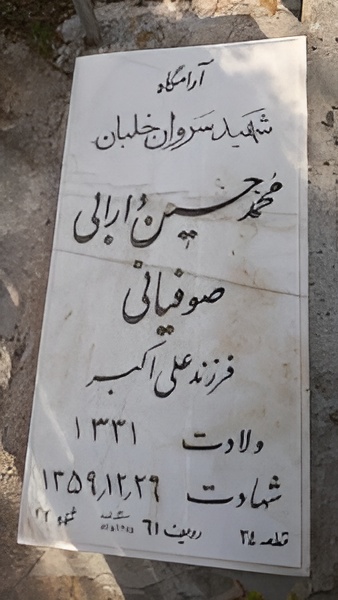 آرامگاه
شهید سروان خلبان
محمد حسین دارابی
صوفیانی
فرزند علی اکبر
ولادت ۱۳۳۱
شهادت ۱۳۵۹/۱۲/۲۶
قطعه ۲۴ ردیف ۶۱